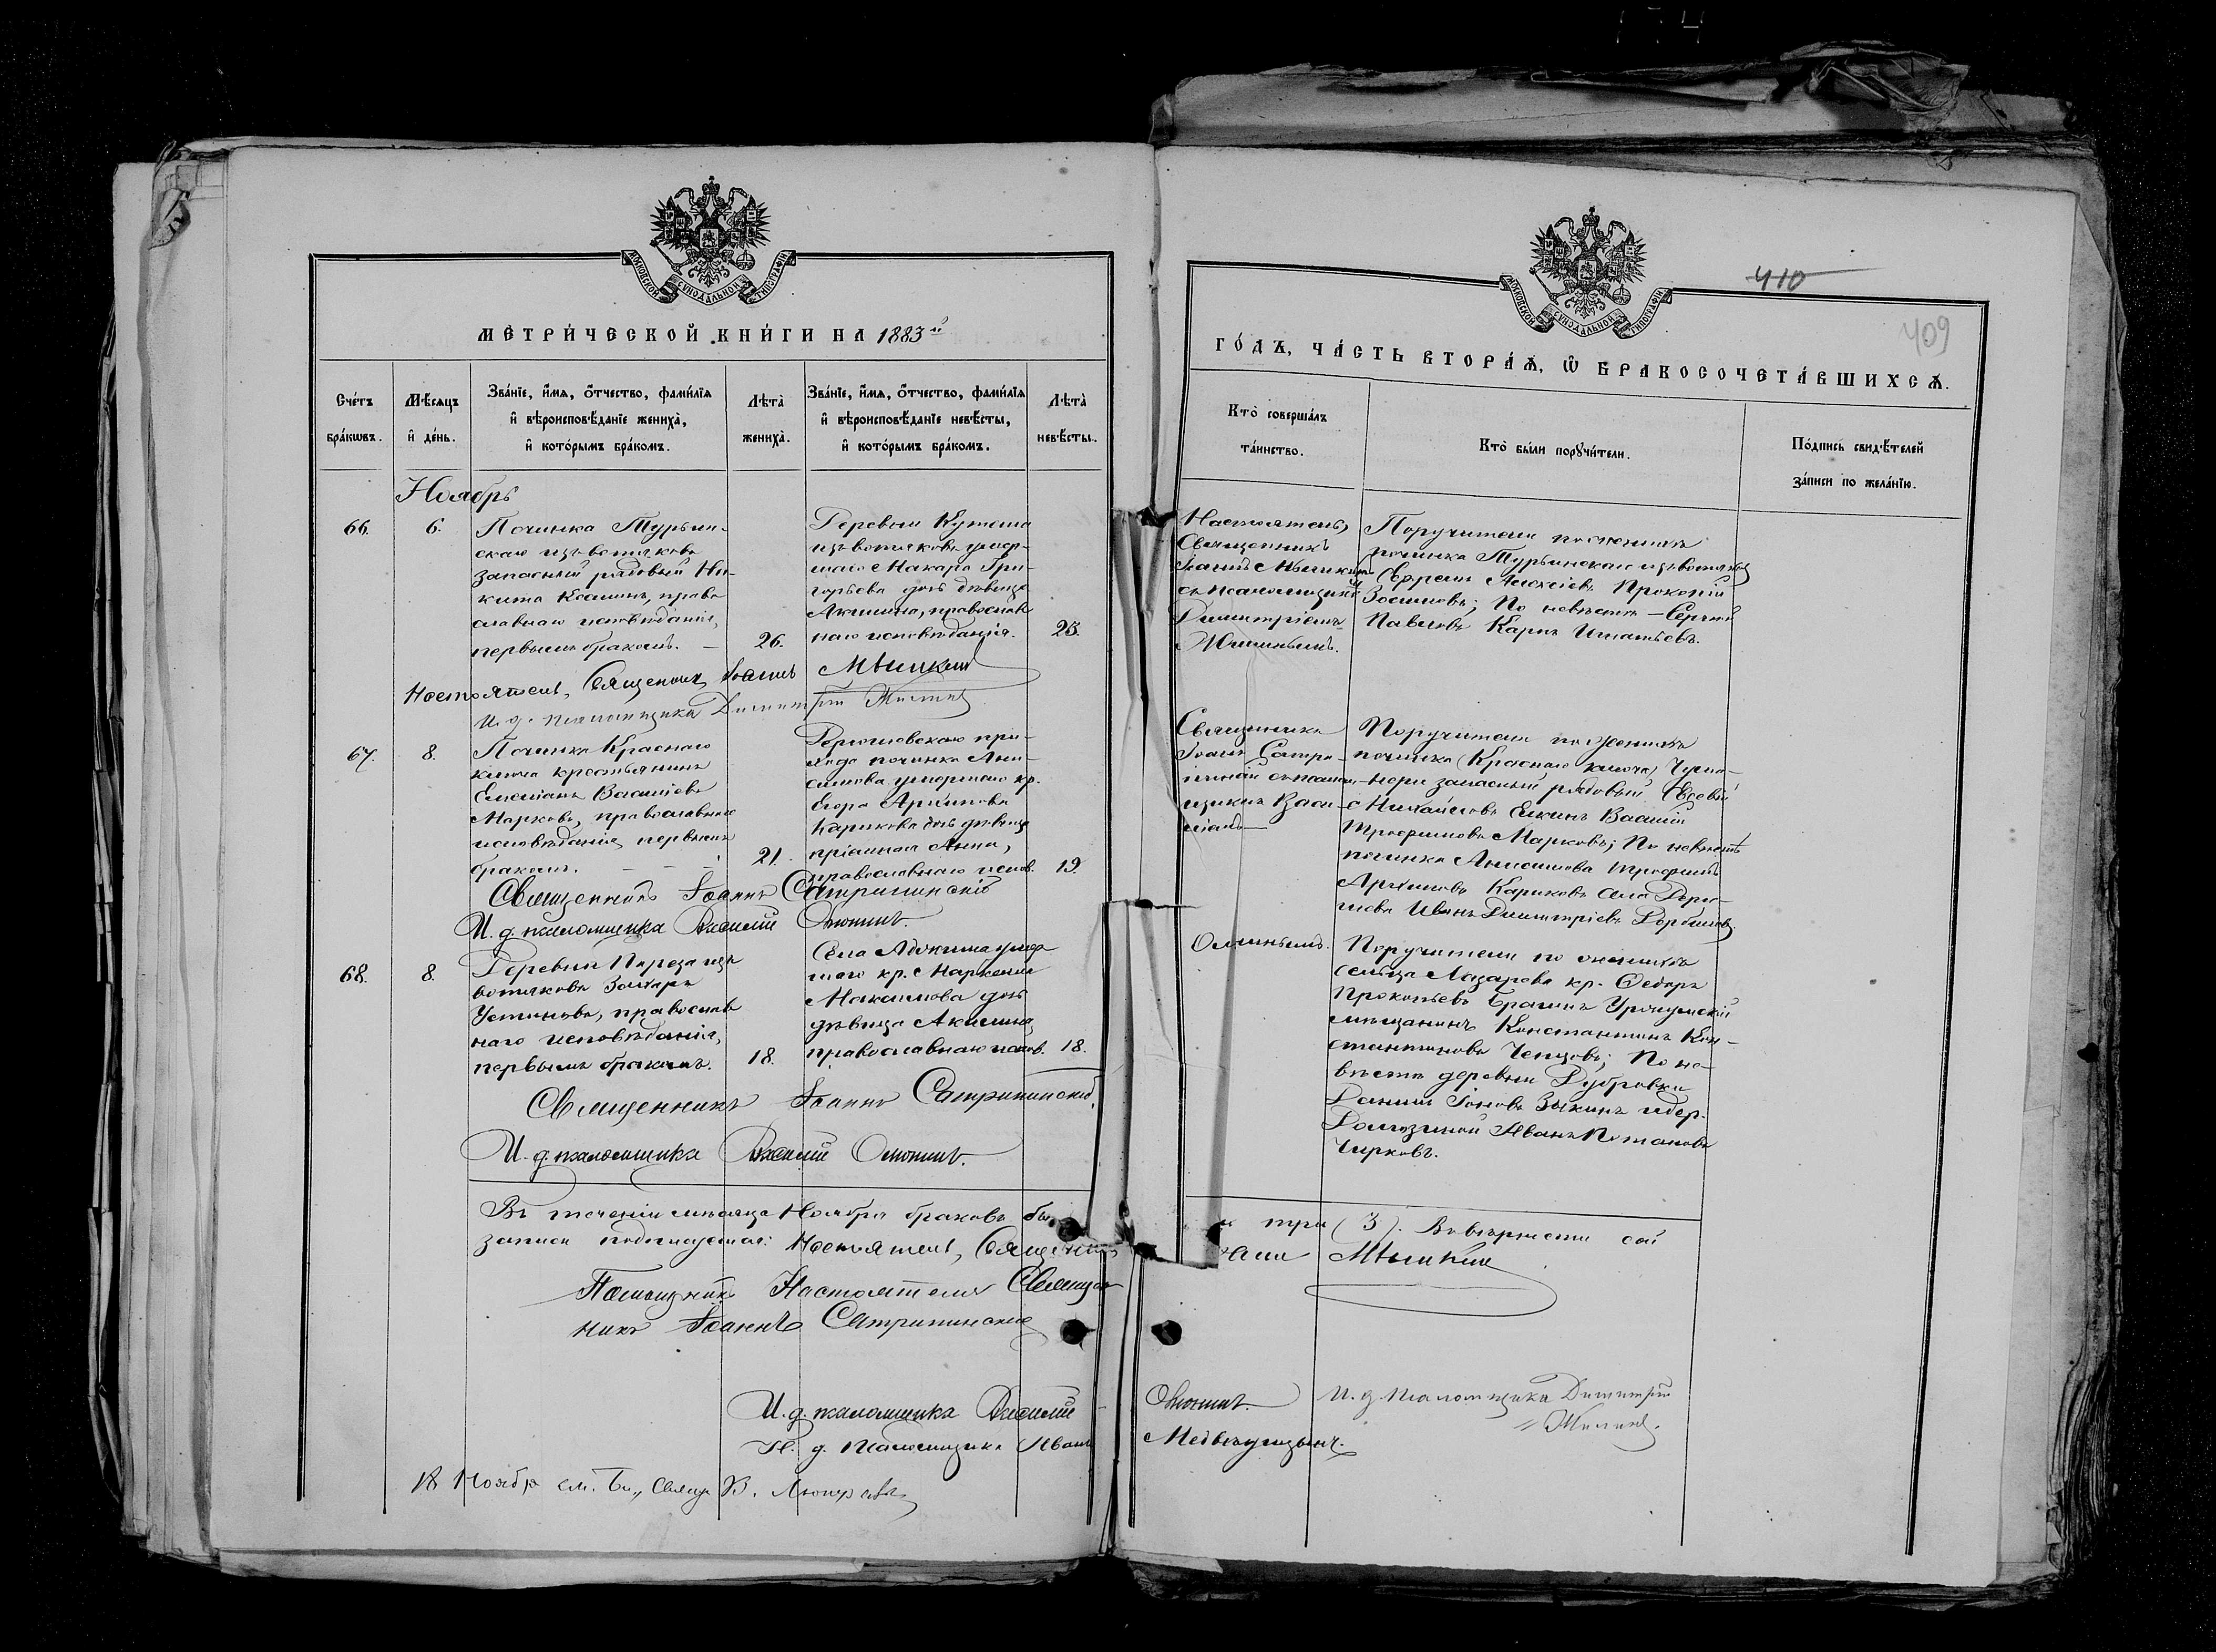 МОСКОВСКОЙ СѴНОДАЛЬНОЙ ТИПОГРАФІИ
МЕТРИ́ЧЕСКОЙ КНИ́ГИ НА 1883 й
Сче́тъ бра́кѡвъ.
Мѣ́сяцъ и҆ де́нь.
Зва́нїе, и҆́мѧ, ѻ҆́тчество, фами́лїѧ
и҆ вѣроисповѣ́данїе жениха̀,
и҆ кото́рымъ бра́комъ.
Лѣта̀ жениха̀.
Зва́нїе, и҆́мѧ, ѻ҆́тчество, фами́лїѧ
и҆ вѣроисповѣ́данїе невѣ́сты,
и҆ кото́рымъ бра́комъ.
Лѣта̀ невѣ́сты.
Ноябрь
66.
6.
Починка Турьин-
скаго изъ вотяковъ
запасный рядовый Ни-
кита Козминъ, право
славнаго исповѣданія,
первымъ бракомъ.
26.
Деревни
изъ вотяковъ умер-
шаго Макара Гри-
горьева дочь дѣвица
Акилина, православ
наго исповѣданія.
23.
Настоятель, Священникъ Іоаннъ Мышкинъ
И. д. псаломщика Димитрій
67.
8.
Починка Краснаго
ключа крестьянинъ
Емельянъ Василіевъ
Марковъ, православнаго
исповѣданія первымъ
бракомъ.
21.
при-
хода починка Ани-
симова умершаго кр.
Егора
Карикова дочь дѣвица
Анна,
православнаго испов.
19.
Священникъ Іоаннъ Сатрапинскій
И. д. псаломщика Василій
68.
8.
Деревни Пареза изъ
вотяковъ Захаръ
Устиновъ, православ
наго исповѣданія,
первымъ бракомъ.
18.
Села умер
шаго кр. Маркела
Максимова дочь
дѣвица Акилина,
православнаго испов.
18.
Священникъ Іоаннъ Сатрапинскій.
И. д. псаломщика Василій
Въ теченіи мѣсяца Ноября браковъ бы
записи подписуемся: Настоятель, Священникъ
Помощникъ Настоятеля Священ
никъ Іоаннъ Сатрапинскій
И. д. псаломщика Василій
И. д. Псаломщика Иванъ
18 Ноября см. Бл., Свящ. В.
МОСКОВСКОЙ СѴНОДАЛЬНОЙ ТИПОГРАФІИ
410
409
ГО́ДЪ, ЧА́СТЬ ВТОРА́Ѧ, Ѡ҆ БРАКОСОЧЕТА́ВШИХСѦ.
Кто̀ соверша́лъ
та́инство.
Кто̀ бы́ли порꙋчи́тели.
По́дпись свидѣ́телей
за́писи по жела́нїю.
Настоятель,
Священникъ
Іоаннъ Мышкинъ
съ псаломщикомъ
Димитріемъ
Поручители по женихѣ
починка Турьинскаго изъ вотяковъ
Ефремъ Алексіевъ Прокопій
Зосимовъ; По невѣстѣ — Сергѣй
Павловъ Карпъ Игнатьевъ.
Священникъ
Іоаннъ Сатра-
пинскій съ псалом-
щикомъ Васи-
ліемъ
Поручители по женихѣ
починка Краснаго ключа,
запасный рядовый Евсевій
Михайловъ Елкинъ Василій
Трофимовъ Марковъ; По невѣстѣ
починка Анисимова Трофимъ
Кариковъ села
Иванъ Димитріевъ
Поручители по женихѣ
сельца Лазарева кр. Ѳедоръ
Прокопьевъ Уржумскій
мѣщанинъ Константинъ Кон-
стантиновъ Чепцовъ; По не-
вѣстѣ деревни Дубровки
Даніилъ Іоновъ Зыкинъ и дер.
Иванъ Потаповъ
Чирковъ.
три (3). Въ вѣрности сей
Мышкинъ
И. д. Псаломщика Димитрій